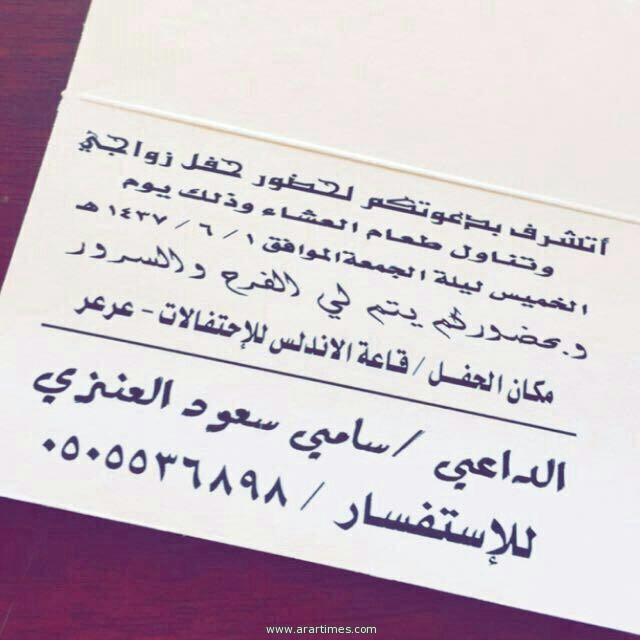 أتشرف بدعوتكم لحضور حفل زواجي
وتناول طعام العشاء وذلك يوم
الخميس ليلة الجمعة الموافق ١ / ٦ / ١٤٣٧ هـ
و بحضوركم يتم لي الفرح والسرور
مكان الحفل / قاعة الاندلس للإحتفالات - عرعر
الداعي / سامي سعود العنزي
للإستفسار / ٠٥٠٥٥٣٦٨٩٨
www.arartimes.com